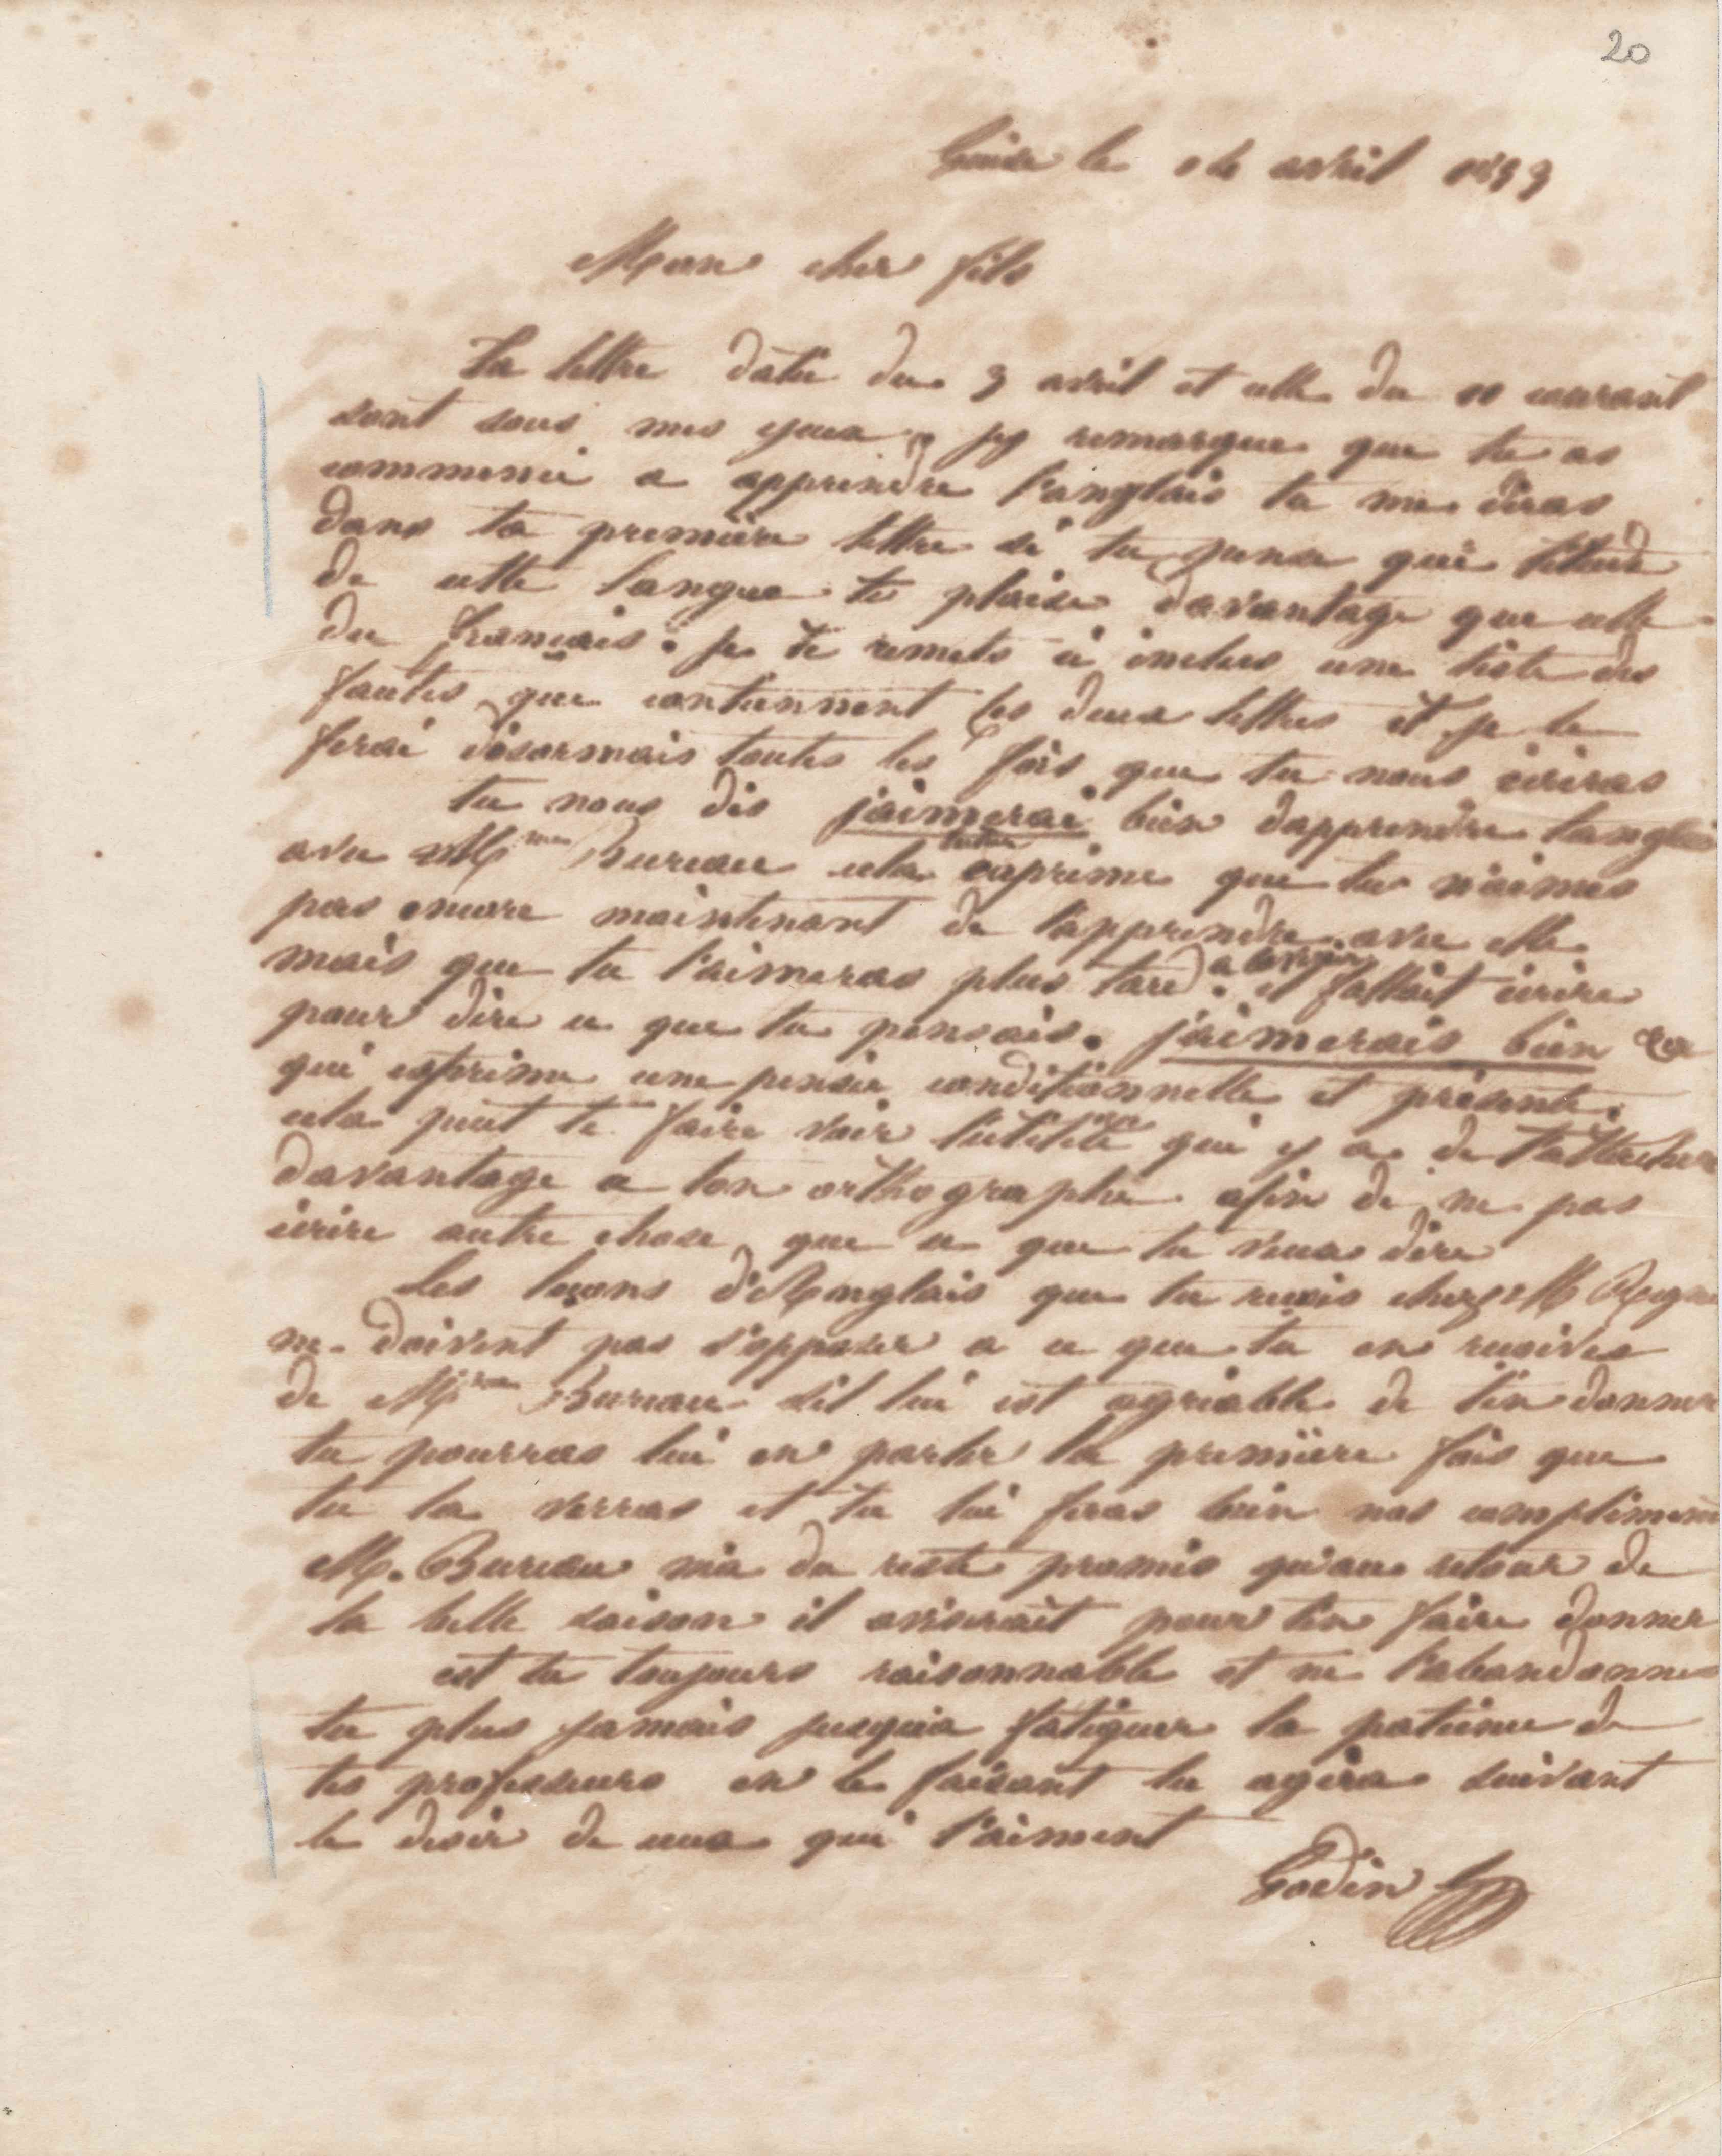 20
Guise le avril
Mon cher fils
Ta lettre datée du 3 avril et celle du 11 courant
sont sous mes yeux. j'y remarque que tu as
commencé a apprendre l'anglais tu me diras
dans ta première lettre si tu pense que l'étude
de cette langue te plaise davantage que celle
du français. je te remets ci inclus une liste des
fautes que contiennent tes deux lettres et je le
ferai désormais toutes les fois que tu nous écriras
tu nous dis jaimerai bien dapprendre langlais
avec Mme Bureau cela exprime que tu n'aimes
pas encore maintenant de l'apprendre avec elle
mais que tu l'aimeras plus tard. il fallait écrire
pour dire ce que tu pensais. jaimerais bien &a
qui exprime une pensée conditionnelle et présente.
cela peut te faire voir l'utilité qui y a de t'attacher
davantage a ton orthographe afin de ne pas
écrire autre chose que ce que tu veux dire
Les leçons d'Anglais que tu reçois chez M
ne doivent pas s'opposer a ce que tu en reçoives
de Mme Bureau s'il lui est agréable de t'en donner
tu pourras lui en parler la première fois que
tu la verras et tu lui feras bien nos compliments
M. Bureau m'a du reste promis qu'au retour de
la belle saison il aviserait pour t'en faire donner
est tu toujours raisonnable et ne t'abandonnes
tu plus jamais jusqu'a fatiguer la patience de
tes professeurs en le faisant tu agira suivant
le desir de ceux qui t'aiment
Godin